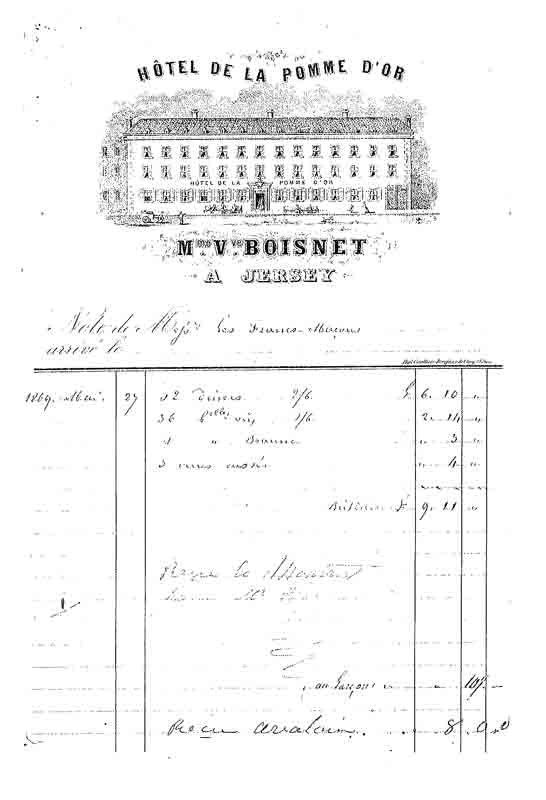 HÔTEL DE LA POMME D'OR
HÔTEL DE LA POMME D'OR
Mme Vve BOISNET
A JERSEY
Note de Messrs les Francs-Maçons
arrivé le
1869. Mai. 27 52 Diners 2/6 £ 6. 10 "
36 blles vin 1/6 2. 14 "
1 " 3 "
3 verres cassés " 4 "
£ 9. 11 "
Reçu le Montant
au garçon " " 10/-
Reçu 8. 0. 0